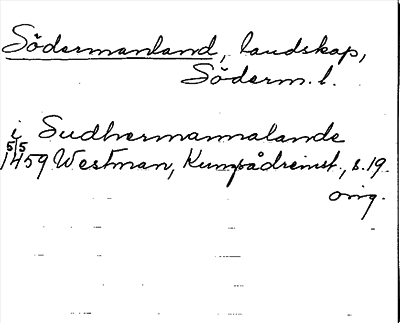 Södermanland, landskap,
Söderm. l.
i Sudhermannalande
5/5
1459 Westman, Kumpådreinet, s. 19.
orig.